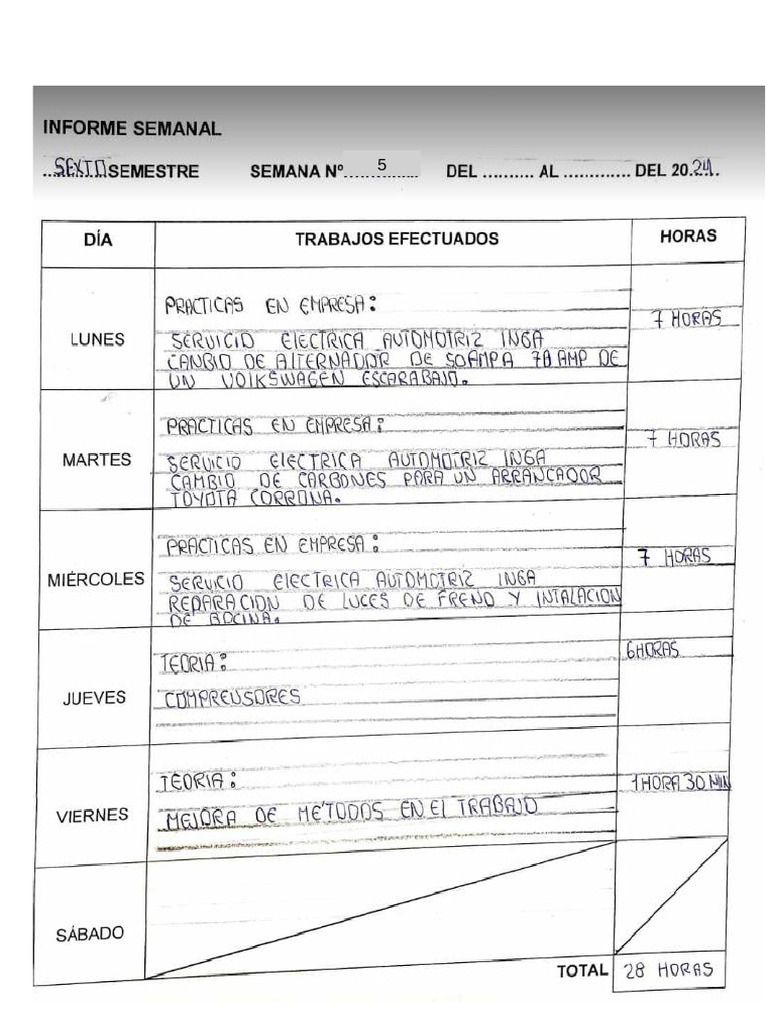 INFORME SEMANAL
SEXTO SEMESTRE SEMANA Nº 5 DEL .......... AL ............. DEL 20.24.
DÍA TRABAJOS EFECTUADOS HORAS
LUNES
PRACTICAS EN EMPRESA:
SERVICIO ELECTRICA AUTOMOTRIZ INGA
CANBIO DE ALTERNADOR DE 50AMPA 70 AMP DE
UN VOLKSWAGEN ESCARABAJO.
7 HORAS
MARTES
PRACTICAS EN EMPRESA:
SERVICIO ELECTRICA AUTOMOTRIZ INGA
CAMBIO DE CARBONES PARA UN ARRANCADOR
TOYOTA CORRONA.
7 HORAS
MIÉRCOLES
PRACTICAS EN EMPRESA:
SERVICIO ELECTRICA AUTOMOTRIZ INGA
REPARACION DE LUCES DE FRENO Y INTALACION
DE BOCINA.
7 HORAS
JUEVES
TEORIA:
COMPRENSORES
6 HORAS
VIERNES
TEORIA:
MEJORA DE METODOS EN EL TRABAJO
1 HORA 30 MIN
SÁBADO
TOTAL 28 HORAS